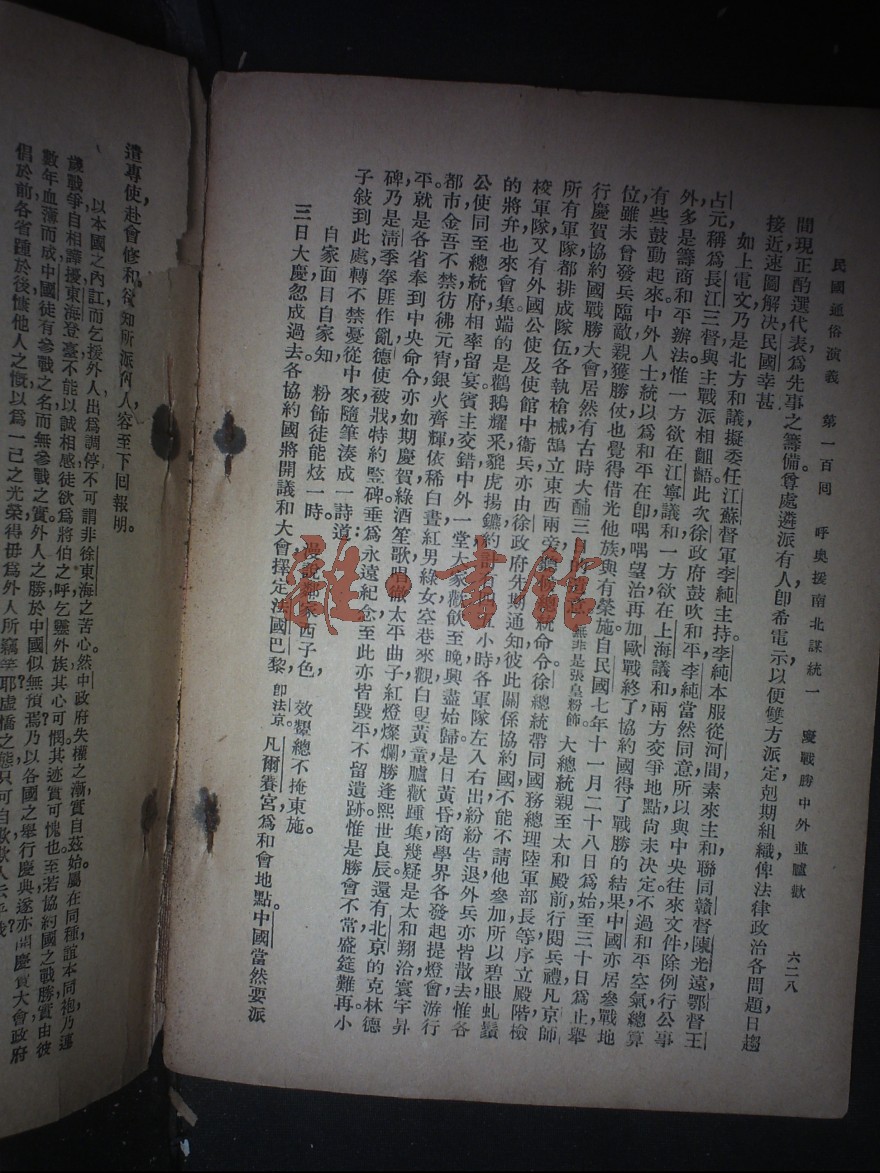 民國通俗演義　第一百回　呼奧援南北謀統一　慶戰勝中外並臚歡　六二八
間現正酌選代表爲先事之籌備尊處遴派有人卽希電示以便雙方派定剋期組織俾法律政治各問題日趨
接近速圖解決民國幸甚
如上電文乃是北方和議擬委任江蘇督軍李純主持。李純本服從河間素來主和聯同贛督陳光遠鄂督王
占元稱爲長江三督與主戰派相齟齬此次徐政府鼓吹和平李純當然同意所以與中央往來文件除例行公事
外多是籌商和平辦法惟一方欲在江寧議和一方欲在上海議和兩方交爭地點尙未決定不過和平空氣總算
有些鼓動起來中外人士統以爲和平在卽喁喁望治再加歐戰終了協約國得了戰勝的結果中國亦居參戰地
位雖未曾發兵臨敵親獲勝仗也覺得借光他族與有榮施自民國七年十一月二十八日爲始至三十日爲止舉
行慶賀協約國戰勝大會居然有古時大酺三日的遺意無非是張皇粉飾。大總統親至太和殿前行閱兵禮凡京師
所有軍隊都排成隊伍各執槍械鵠立東西兩旁統命令徐總統帶同國務總理陸軍部長等序立殿階檢
校軍隊又有外國公使及使館中衞兵亦由徐政府先期通知彼此關係協約國不能不請他參加所以碧眼虬鬚
的將弁也來會集端的是鸛鵝耀釆貔虎揚鑣約小時各軍隊左入右出紛紛吿退外兵亦皆散去惟各
公使同至總統府相率留宴賓主交錯中外一堂大家歡飮至晚興盡始歸是日黃昏商學界各發起提燈會游行
都市金吾不禁彷彿元宵銀火齊輝依稀白晝紅男綠女空巷來觀白叟黃童臚歡踵集幾疑是太和翔洽寰宇昇
平就是各省奉到中央命令亦如期慶賀綠酒笙歌唱徹太平曲子紅燈燦爛勝逢熙世良辰還有北京的克林德
碑乃是淸季拳匪作亂德使被戕特約豎碑垂爲永遠紀念至此亦皆毀平不留遺跡惟是勝會不常盛筵難再小
子敍到此處轉不禁憂從中來隨筆湊成一詩道：
自家面目自家知　粉飾徒能炫一時。　漫說鄰家西子色，　效顰總不掩東施。
三日大慶忽成過去各協約國將開議和大會擇定法國巴黎卽法京。凡爾賽宮爲和會地點中國當然要派
遣專使赴會修和欲知所派何人容至下回報明。
以本國之內訌而乞援外人出爲調停不可謂非徐東海之苦心。然中政府失權之漸實自茲始屬在同種誼本同袍乃連
歲戰爭自相譁擾東海登臺不能以誠相感徒欲爲將伯之呼乞靈外族其心可憫其迹實可愧也至若協約國之戰勝實由彼
數年血薄而成中國徒有參戰之名而無參戰之實外人之勝於中國似無預焉乃以各國之舉行慶典遂亦開慶賀大會政府
倡於前各省踵於後慷他人之慨以爲一己之光榮得毋爲外人所竊笑耶虛憍之態只可自欺欺人